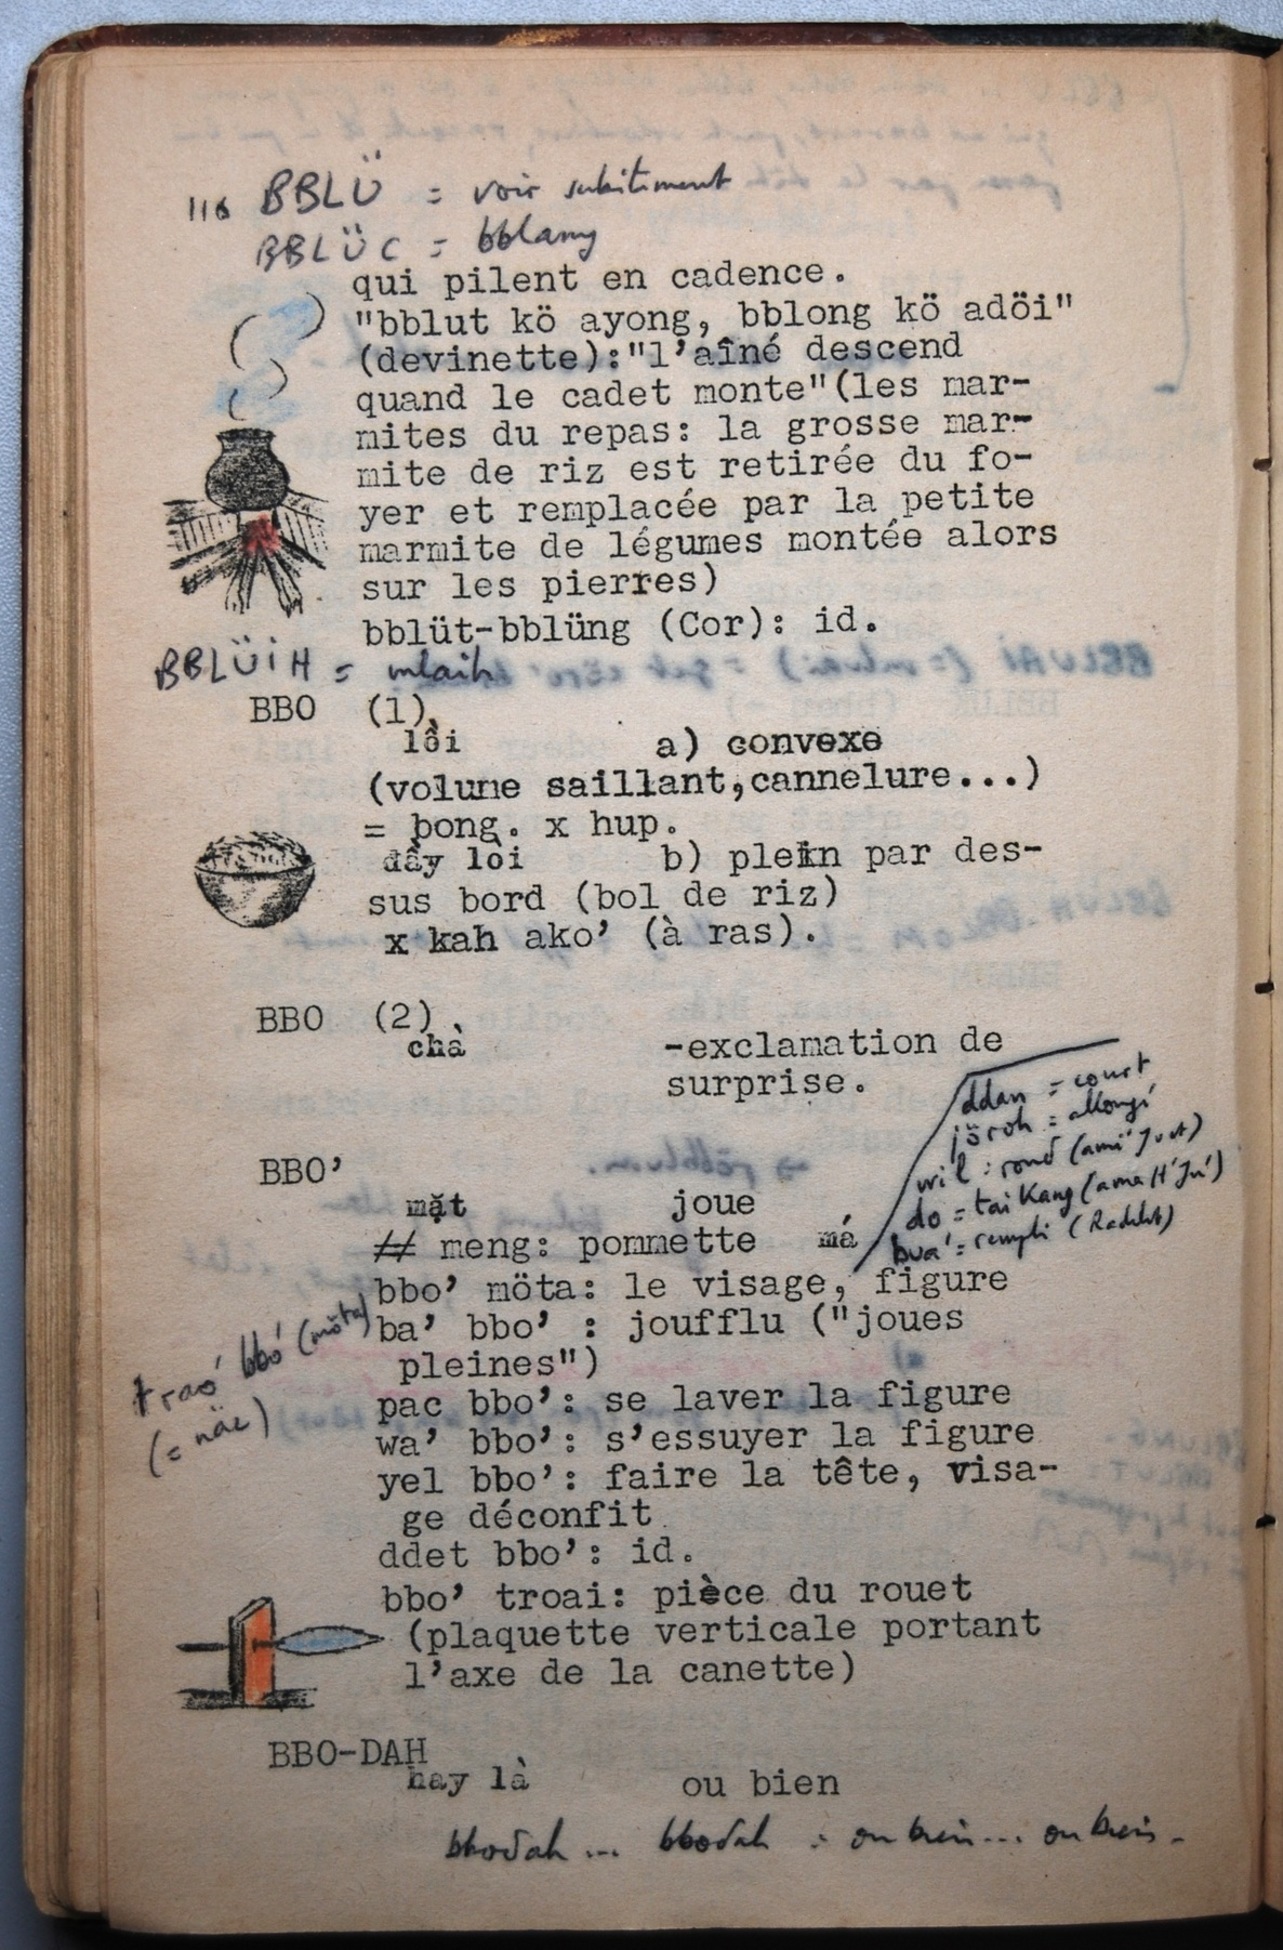 116 BBLÜ = voir subitement
BBLÜC = bblang
qui pilent en cadence.
"bblut kö ayong, bblong kö adöi"
(devinette):"l'aîné descend
quand le cadet monte"(les mar-
mites du repas: la grosse mar-
mite de riz est retirée du fo-
yer et remplacée par la petite
marmite de légumes montée alors
sur les pierres)
bblüt-bblüng (Cor): id.
BBLÜiH = mlaih
BBO (1)
lồi a) convexe
(volume saillant,cannelure...)
= bong. x hup.
đầy lòi b) plein par des-
sus bord (bol de riz)
x kah ako' (à ras).
BBO (2)
chà -exclamation de
surprise.
ddan = court
jöroh = allongé
wil = rond (amä Jut)
do = tai Kang (ama H'Jú)
bua' = rempli (Radelut)
BBO'
mặt joue
// meng: pommette má
bbo' möta: le visage, figure
ba' bbo' : joufflu ("joues
pleines")
traó bbó (möta)
(= näc)
pac bbo': se laver la figure
wa' bbo': s'essuyer la figure
yel bbo': faire la tête, visa-
ge déconfit
ddet bbo': id.
bbo' troai: pièce du rouet
(plaquette verticale portant
l'axe de la canette)
BBO-DAH
hay là ou bien
bbodah ... bbodah : ou bien... ou bien.